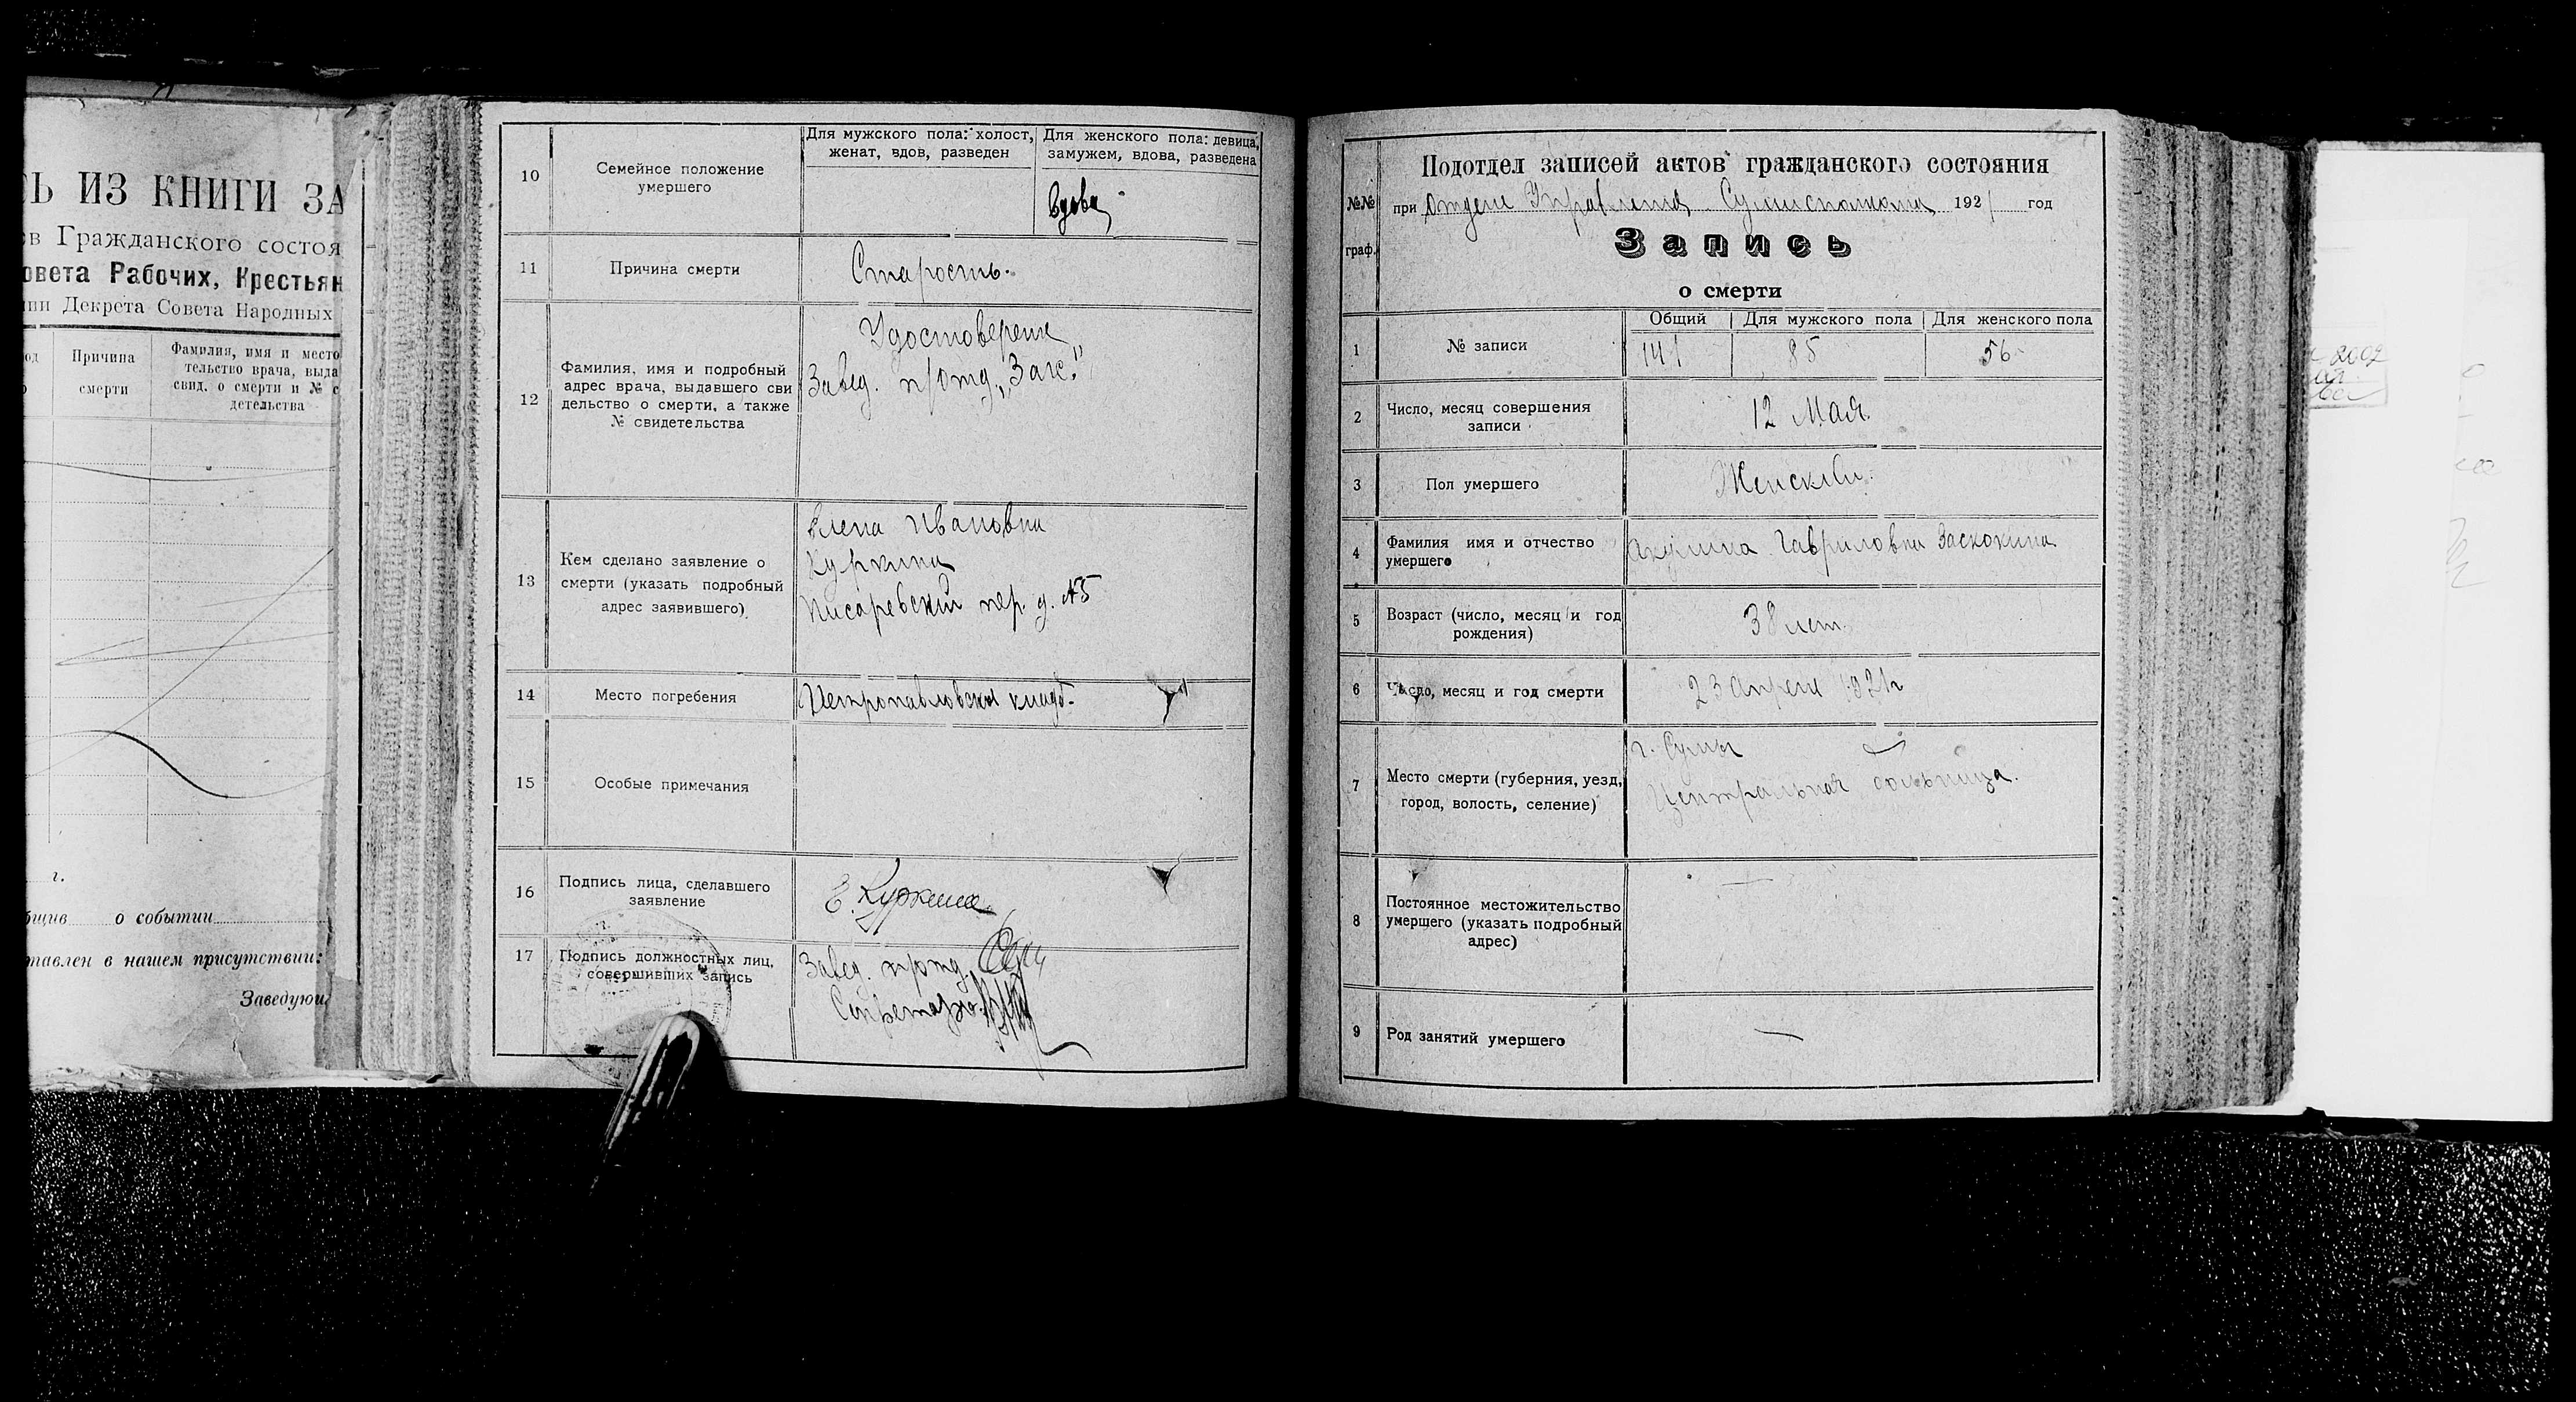 Ь ИЗ КНИГИ ЗА
в Гражданского состоя
овета Рабочих, Крестьян
Декрета Совета Народных
Причина
смерти
Фамилия, имя и место
тельство врача, выда
свид. о смерти и № с
детельства
г.
о событии
тавлен в нашем присутствии:
Заведую
10
Семейное положение
умершего
Для мужского пола: холост,
женат, вдов, разведен
Для женского пола: девица,
замужем, вдова, разведена
Вдова
11
Причина смерти
Старость.
12
Фамилия, имя и подробный
адрес врача, выдавшего сви
дельство о смерти, а также
№ свидетельства
Удостоверение
Завед. п/отд. „Загс."
13
Кем сделано заявление о
смерти (указать подробный
адрес заявившего)
Елена Ивановна
Куркина
Писаревский пер. д. №5
14
Место погребения
Петропавловское кладб.
15
Особые примечания
16
Подпись лица, сделавшего
заявление
Е. Куркина
17
Подпись должностных лиц,
совершивших запись
Завед. п/отд.
Секретарь
№№
граф.
Подотдел записей актов гражданского состояния
при Отделе Управления Сумисполкома 1921 год
Запись
о смерти
1
№ записи
Общий
Для мужского пола
Для женского пола
141
85
56
2
Число, месяц совершения
записи
12 Мая
3
Пол умершего
Женский.
4
Фамилия имя и отчество
умершего
Акулина Гавриловна Заскокина
5
Возраст (число, месяц и год
рождения)
38 лет.
6
Число, месяц и год смерти
23 апреля 1921 г
7
Место смерти (губерния, уезд,
город, волость, селение)
г. Сумы
Центральная больница.
8
Постоянное местожительство
умершего (указать подробный
адрес)
—
9
Род занятий умершего
—
2002